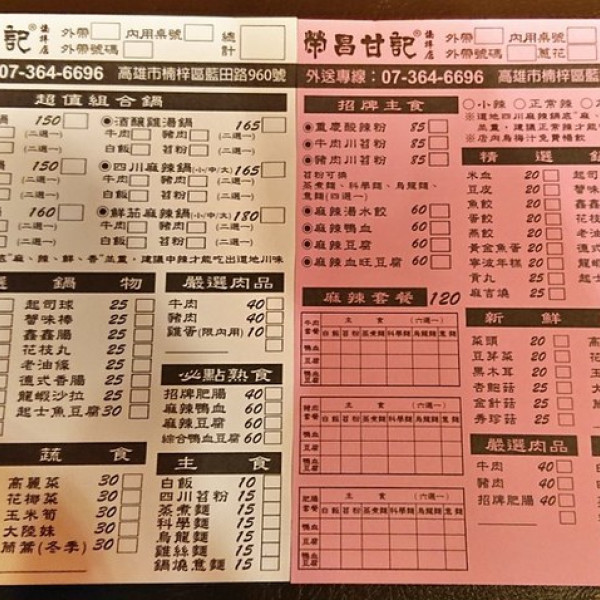 記® 僑
祥
店
外帶 內用桌號 總
外帶號碼 計
07-364-6696 高雄市楠梓區藍田路960號
超值組合鍋
鍋 150
(二選一)
(二選一)
鍋 150
(二選一)
(二選一)
160
(二選一)
(二選一)
◉酒釀雞湯鍋 165
牛肉 豬肉 (二選一)
白飯 苕粉 (二選一)
◉四川麻辣鍋(小/中/大) 165
牛肉 豬肉 (二選一)
白飯 苕粉 (二選一)
◉鮮茄麻辣鍋(小/中/大) 180
牛肉 豬肉 (二選一)
白飯 苕粉 (二選一)
"麻、辣、鮮、香"並重,建議中辣才能吃出道地川味
選鍋物
起司球 25
蟹味棒 25
鑫鑫腸 25
花枝丸 25
老油條 25
德式香腸 25
龍蝦沙拉 25
起士魚豆腐 30
嚴選肉品
牛肉 40
豬肉 40
雞蛋(限內用) 10
必點熟食
招牌肥腸 60
麻辣鴨血 60
麻辣豆腐 60
綜合鴨血豆腐 60
蔬食
高麗菜 30
花椰菜 30
玉米筍 30
大陸妹 30
茼蒿(冬季) 30
主食
白飯 10
四川苕粉 15
蒸煮麵 15
科學麵 15
烏龍麵 15
雞絲麵 15
鍋燒意麵 15
榮昌甘記® 僑
祥
店
外帶 內用
外帶號碼 蔥花
外送專線:07-364-6696 高雄市楠梓區藍田
招牌主食
◉重慶酸辣粉 85
◉牛肉川苕粉 85
◉豬肉川苕粉 85
苕粉可換
蒸煮麵、科學麵、烏龍麵、
意麵(四選一)
◉麻辣湯水餃 60
◉麻辣鴨血 60
◉麻辣豆腐 60
◉麻辣血旺豆腐 60
○小辣 ○正常辣
※道地四川麻辣鍋底"麻、
並重,建議正常辣才能
※店內烏梅汁免費暢飲
精選鍋
米血 20
豆皮 20
魚餃 20
蛋餃 20
燕餃 20
黃金魚蛋 20
寧波年糕 20
貢丸 25
麻吉燒 25
起司
蟹味
鑫鑫
花枝
老油
德式
龍蝦
起士
麻辣套餐 120
牛肉
套餐
主食 (六選一)
白飯 苕粉 蒸煮麵 科學麵 烏龍麵 意麵
鴨血
豆腐
鴨血
豆腐
豬肉
套餐
主食 (六選一)
白飯 苕粉 蒸煮麵 科學麵 烏龍麵 意麵
鴨血
豆腐
鴨血
豆腐
肥腸
套餐
主食 (六選一)
白飯 苕粉 蒸煮麵 科學麵 烏龍麵 意麵
鴨血
豆腐
鴨血
豆腐
新鮮
菜頭 20
豆芽菜 20
黑木耳 20
杏鮑菇 25
金針菇 25
秀珍菇 25
高
花
玉
大
茼
嚴選肉品
牛肉 40
豬肉 40
招牌肥腸 40
白
四
蒸